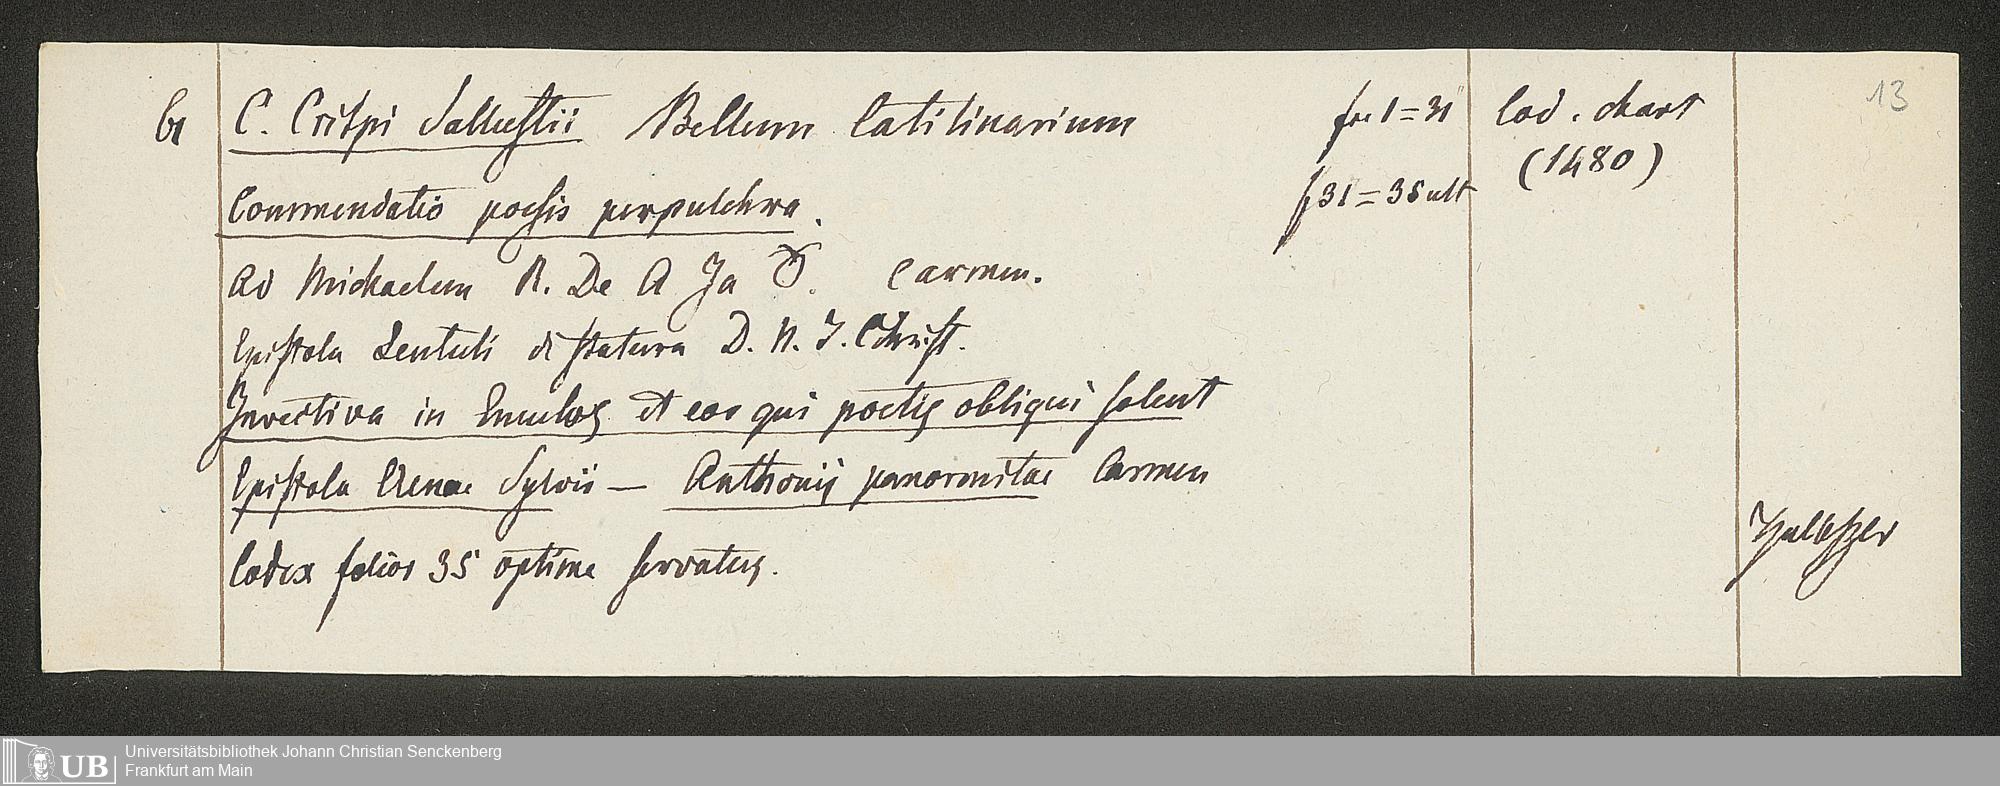 C. Crispi Sallustii Bellum Catilinarium fol 1=31 Cod. chart 13
(1480)
Commendatio poesis perpulchra. f 31=35 ult
Ad Michaelem R. De A Ja carmen.
Epistola Lentuli di statura D. N. J. Christ.
Invectiva in Emulos et eos qui poetis obliqui solent
Epistola Aeneae Sylvii — Anthonij panormitae Carmen
Codex folior 35 optime servatus.
Universitätsbibliothek Johann Christian Senckenberg
UB Frankfurt am Main